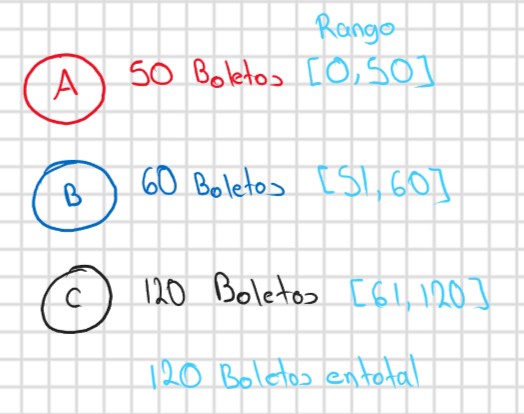 Rango
A 50 Boletos [0,50]
B 60 Boletos [51,60]
C 120 Boletos [61,120]
120 Boletos entotal